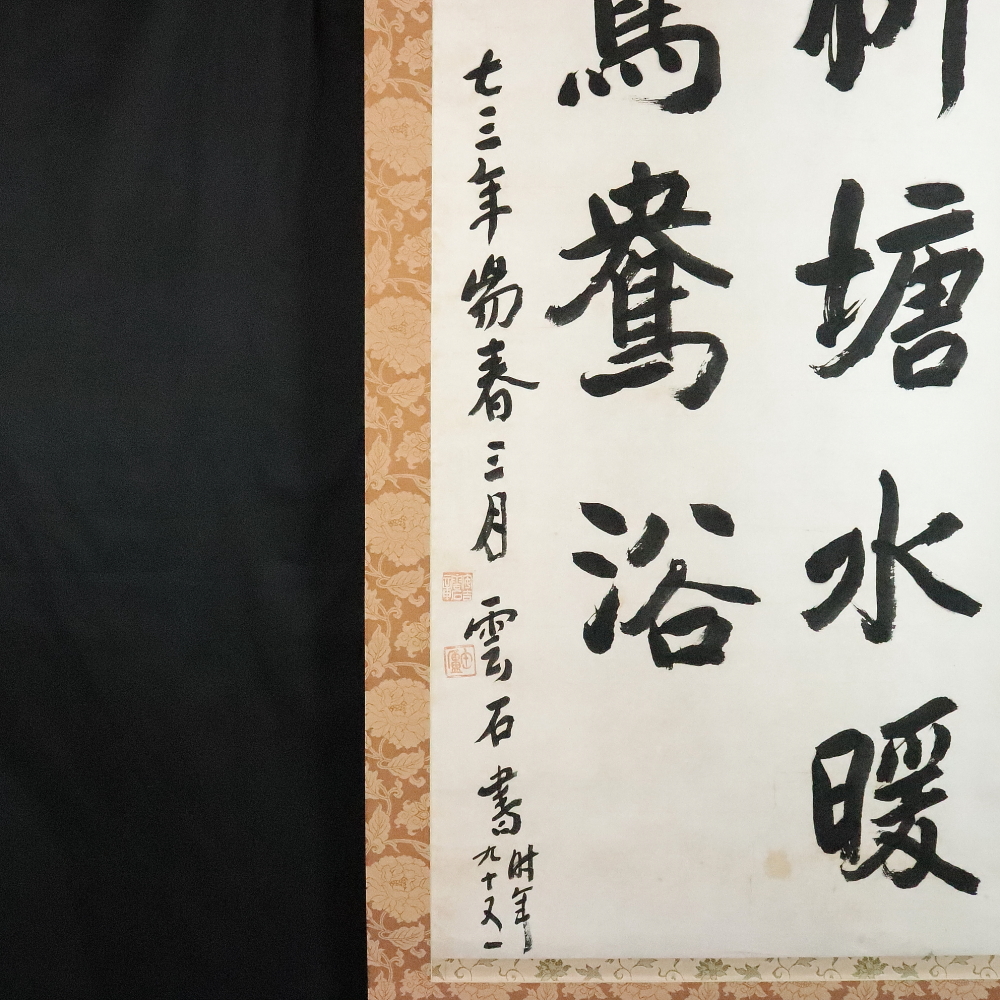 塘水暖
鴛鴦浴
七三年昜春三月 雲石書
时年
九十又一